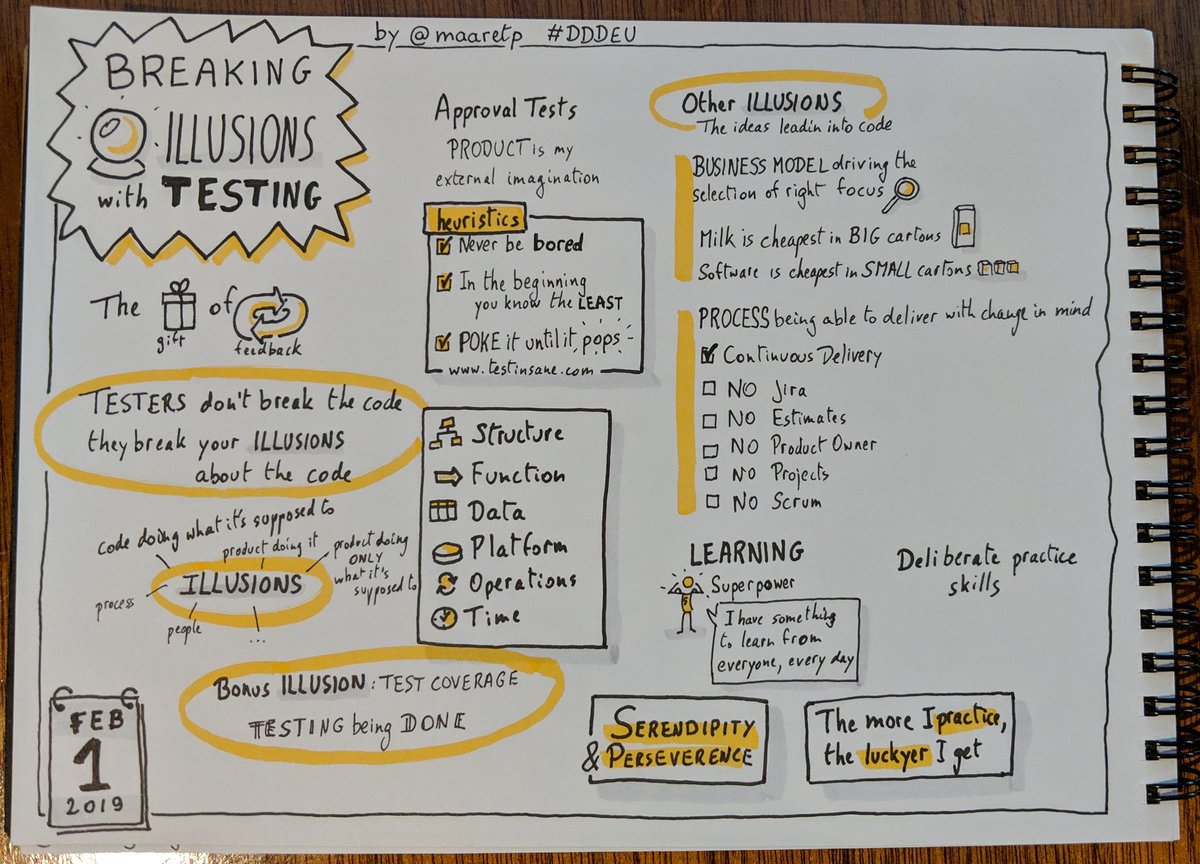 by @maaretp #DDDEU
BREAKING
ILLUSIONS
with TESTING
The gift of feedback
TESTERS don't break the code
they break your ILLUSIONS
about the code
code doing what it's supposed to
product doing it
product doing
ONLY
what it's
supposed to
ILLUSIONS
process
people
...
Bonus ILLUSION: TEST COVERAGE
TESTING being DONE
FEB
1
2019
Approval Tests
PRODUCT is my
external imagination
heuristics
Never be bored
In the beginning
you know the LEAST
POKE it until it pops
www.testinsane.com
Structure
Function
Data
Platform
Operations
Time
Other ILLUSIONS
The ideas leadin into code
BUSINESS MODEL driving the
selection of right focus
Milk is cheapest in BIG cartons
Software is cheapest in SMALL cartons
PROCESS being able to deliver with change in mind
Continuous Delivery
NO Jira
NO Estimates
NO Product Owner
NO Projects
NO Scrum
LEARNING
Superpower
I have something
to learn from
everyone, every day
Deliberate practice
skills
SERENDIPITY
& PERSEVERENCE
The more I practice,
the luckyer I get